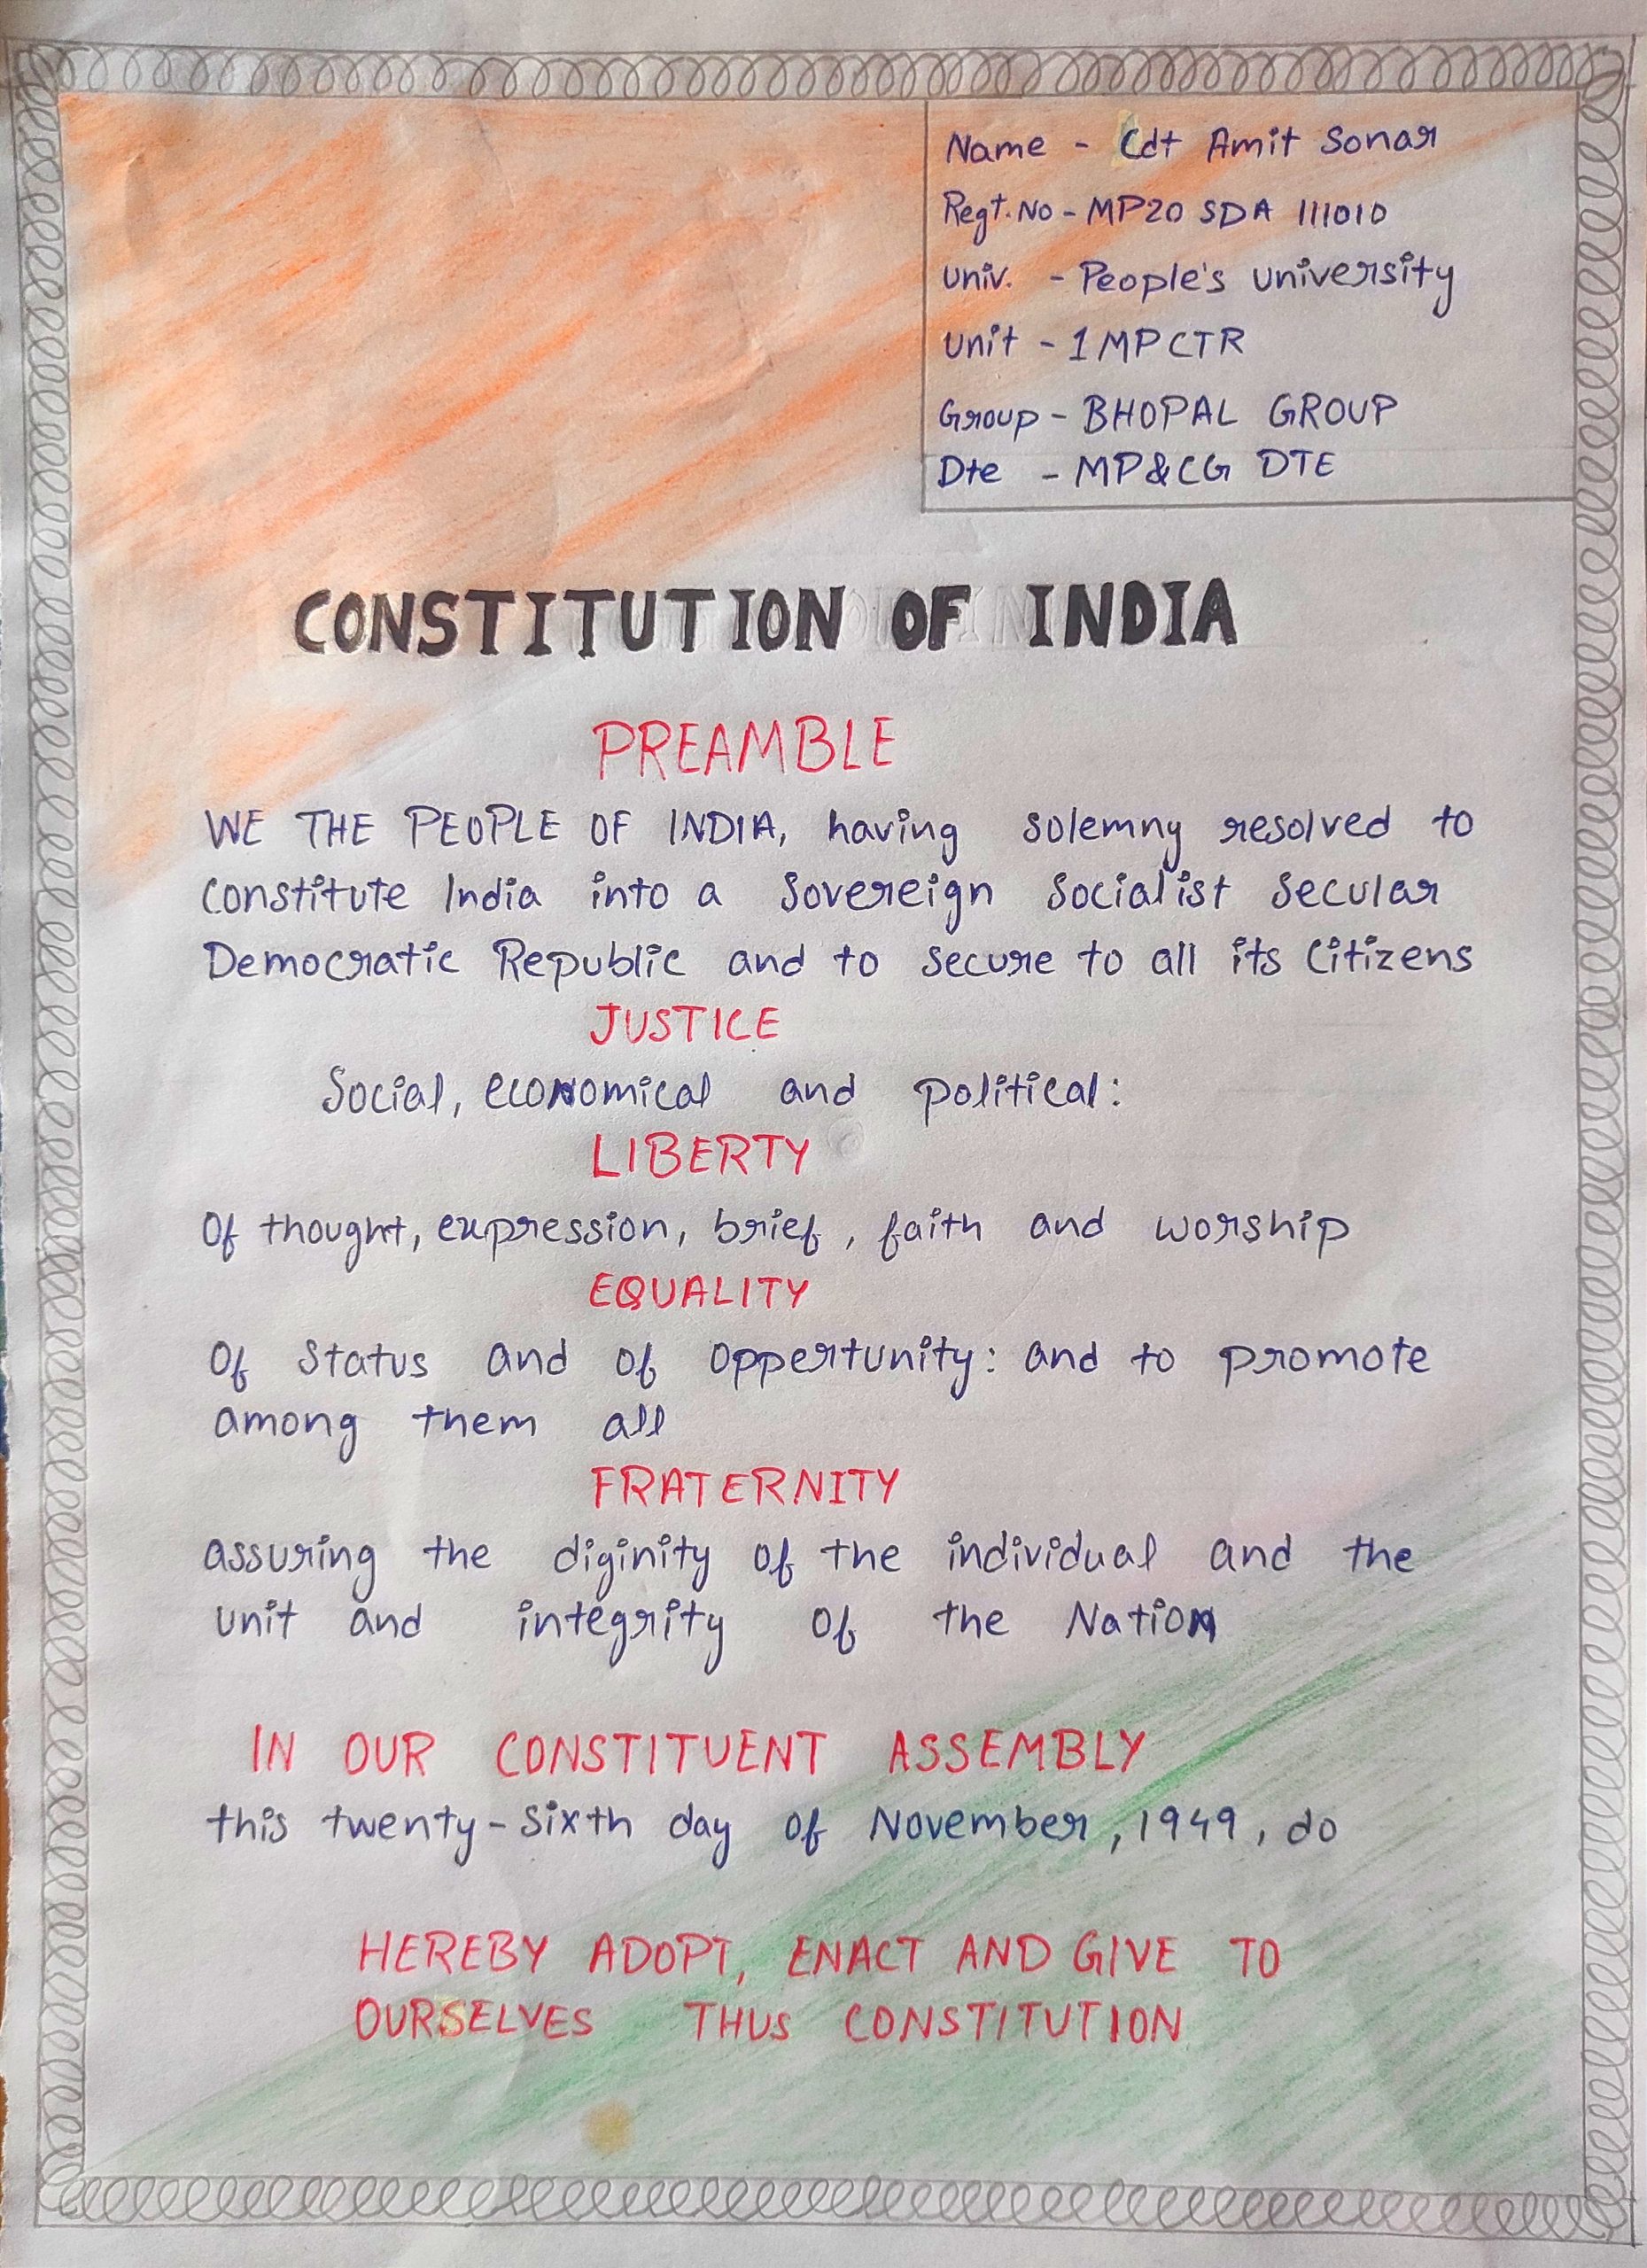 Name - Cdt Amit Sonar
Regt.No - MP20 SDA 111010
Univ. - People's University
Unit - 1 MP CTR
Group - BHOPAL GROUP
Dte - MP&CG DTE
CONSTITUTION OF INDIA
PREAMBLE
WE THE PEOPLE OF INDIA, having solemny resolved to
Constitute India into a Sovereign Socialist Secular
Democratic Republic and to secure to all its Citizens
JUSTICE
Social, economical and political:
LIBERTY
Of thought, expression, brief, faith and worship
EQUALITY
Of Status and of oppertunity: and to promote
among them all
FRATERNITY
assuring the diginity of the individual and the
unit and integrity of the Nation
IN OUR CONSTITUENT ASSEMBLY
this twenty-sixth day of November, 1949, do
HEREBY ADOPT, ENACT AND GIVE TO
OURSELVES THUS CONSTITUTION